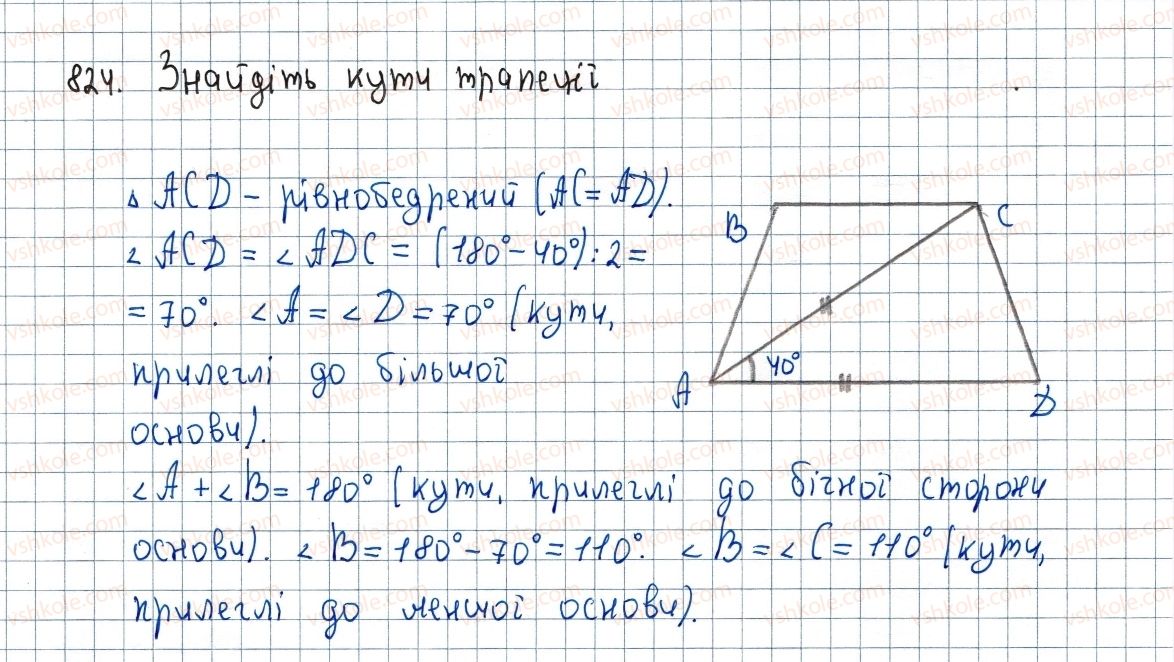 824. Знайдіть кути трапеції
△ ACD – рівнобедрений (AC = AD).
∠ ACD = ∠ ADC = (180° – 40°) : 2 =
= 70°. ∠ A = ∠ D = 70° (кути,
прилеглі до більшої
основи).
∠ A + ∠ B = 180° (кути, прилеглі до бічної сторони
основи). ∠ B = 180° – 70° = 110°. ∠ B = ∠ C = 110° (кути,
прилеглі до меншої основи).
B
C
40°
A
D
vshkole.com